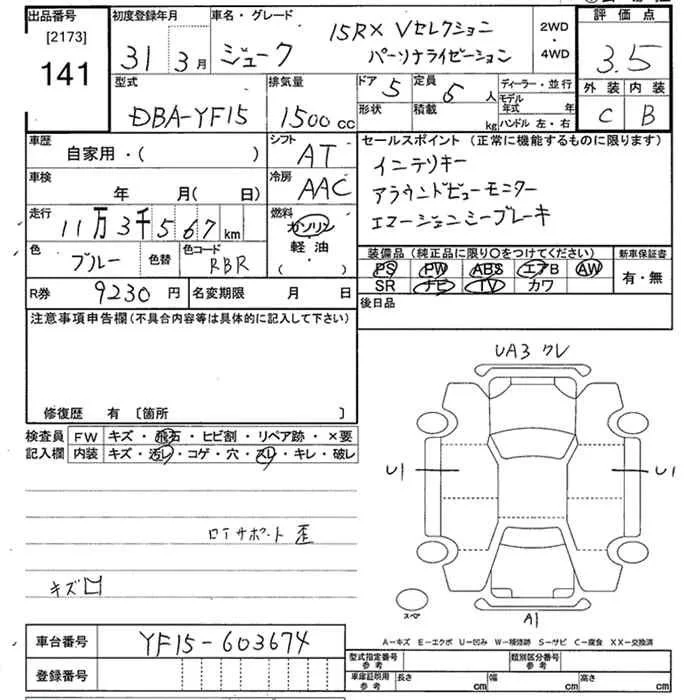 出品番号
[2173]
141
初度登録年月
31年 3月
車名・グレード
ジューク
15RX Vセレクション
パーソナライゼーション
2WD
・
4WD
評価点
3.5
外装 内装
C B
型式
DBA-YF15
排気量
1500 cc
ドア 5
定員 5 人
形状
積載 kg
ディーラー・並行
モデル年式 年
ハンドル 左・右
車歴
自家用・( )
シフト
AT
車検
年 月( 日)
冷房
AAC
走行
11万3千567 km
燃料
ガソリン
軽油
( ・ )
色
ブルー
色替
色コード
RBR
セールスポイント (正常に機能するものに限ります)
インテリキー
アラウンドビューモニター
エマージェンシーブレーキ
装備品 (純正品に限り○をつけてください)
PS PW ABS エアB AW
SR ナビ TV カワ
新車保証書
有・無
後日品
R券 9230 円
名変期限 月 日
注意事項申告欄 (不具合内容等は具体的に記入して下さい)
修復歴 有 〔箇所 〕
検査員記入欄
FW キズ・飛石・ヒビ割・リペア跡・×要
内装 キズ・汚レ・コゲ・穴・スレ・キレ・破レ
ロアサポート 歪
キズ
UA3 クレ
U1
U1
A1
スペア
A−キズ E−エクボ U−凹み W−補修跡 S−サビ C−腐食 XX−交換済
車台番号 YF15-603674
登録番号
型式指定番号 参考
類別区分番号 参考
車庫証明用 参考 長さ cm 幅 cm 高さ cm